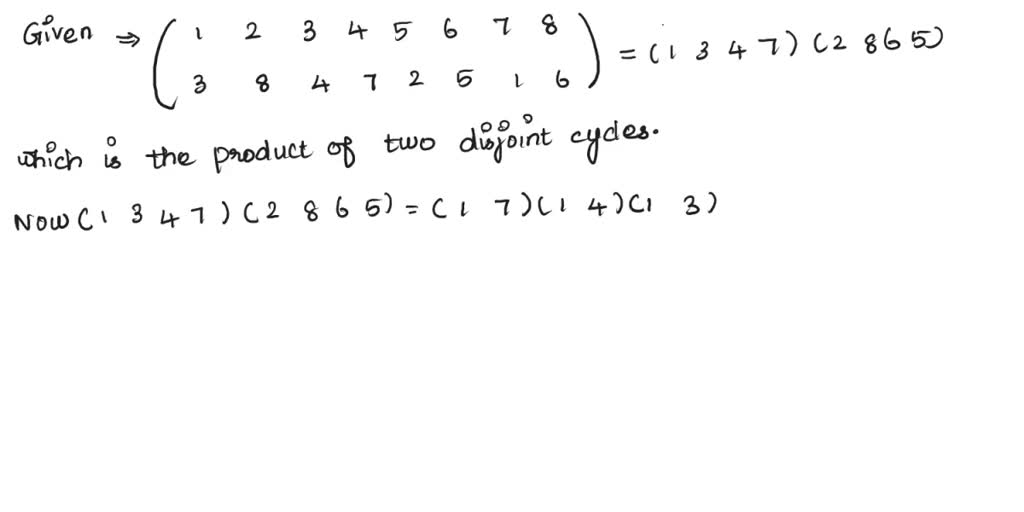 Given ⇒ ( 1 2 3 4 5 6 7 8 ) = (1 3 4 7) (2 8 6 5)
3 8 4 7 2 5 1 6
which is the product of two disjoint cycles.
Now (1 3 4 7) (2 8 6 5) = (1 7) (1 4) (1 3)